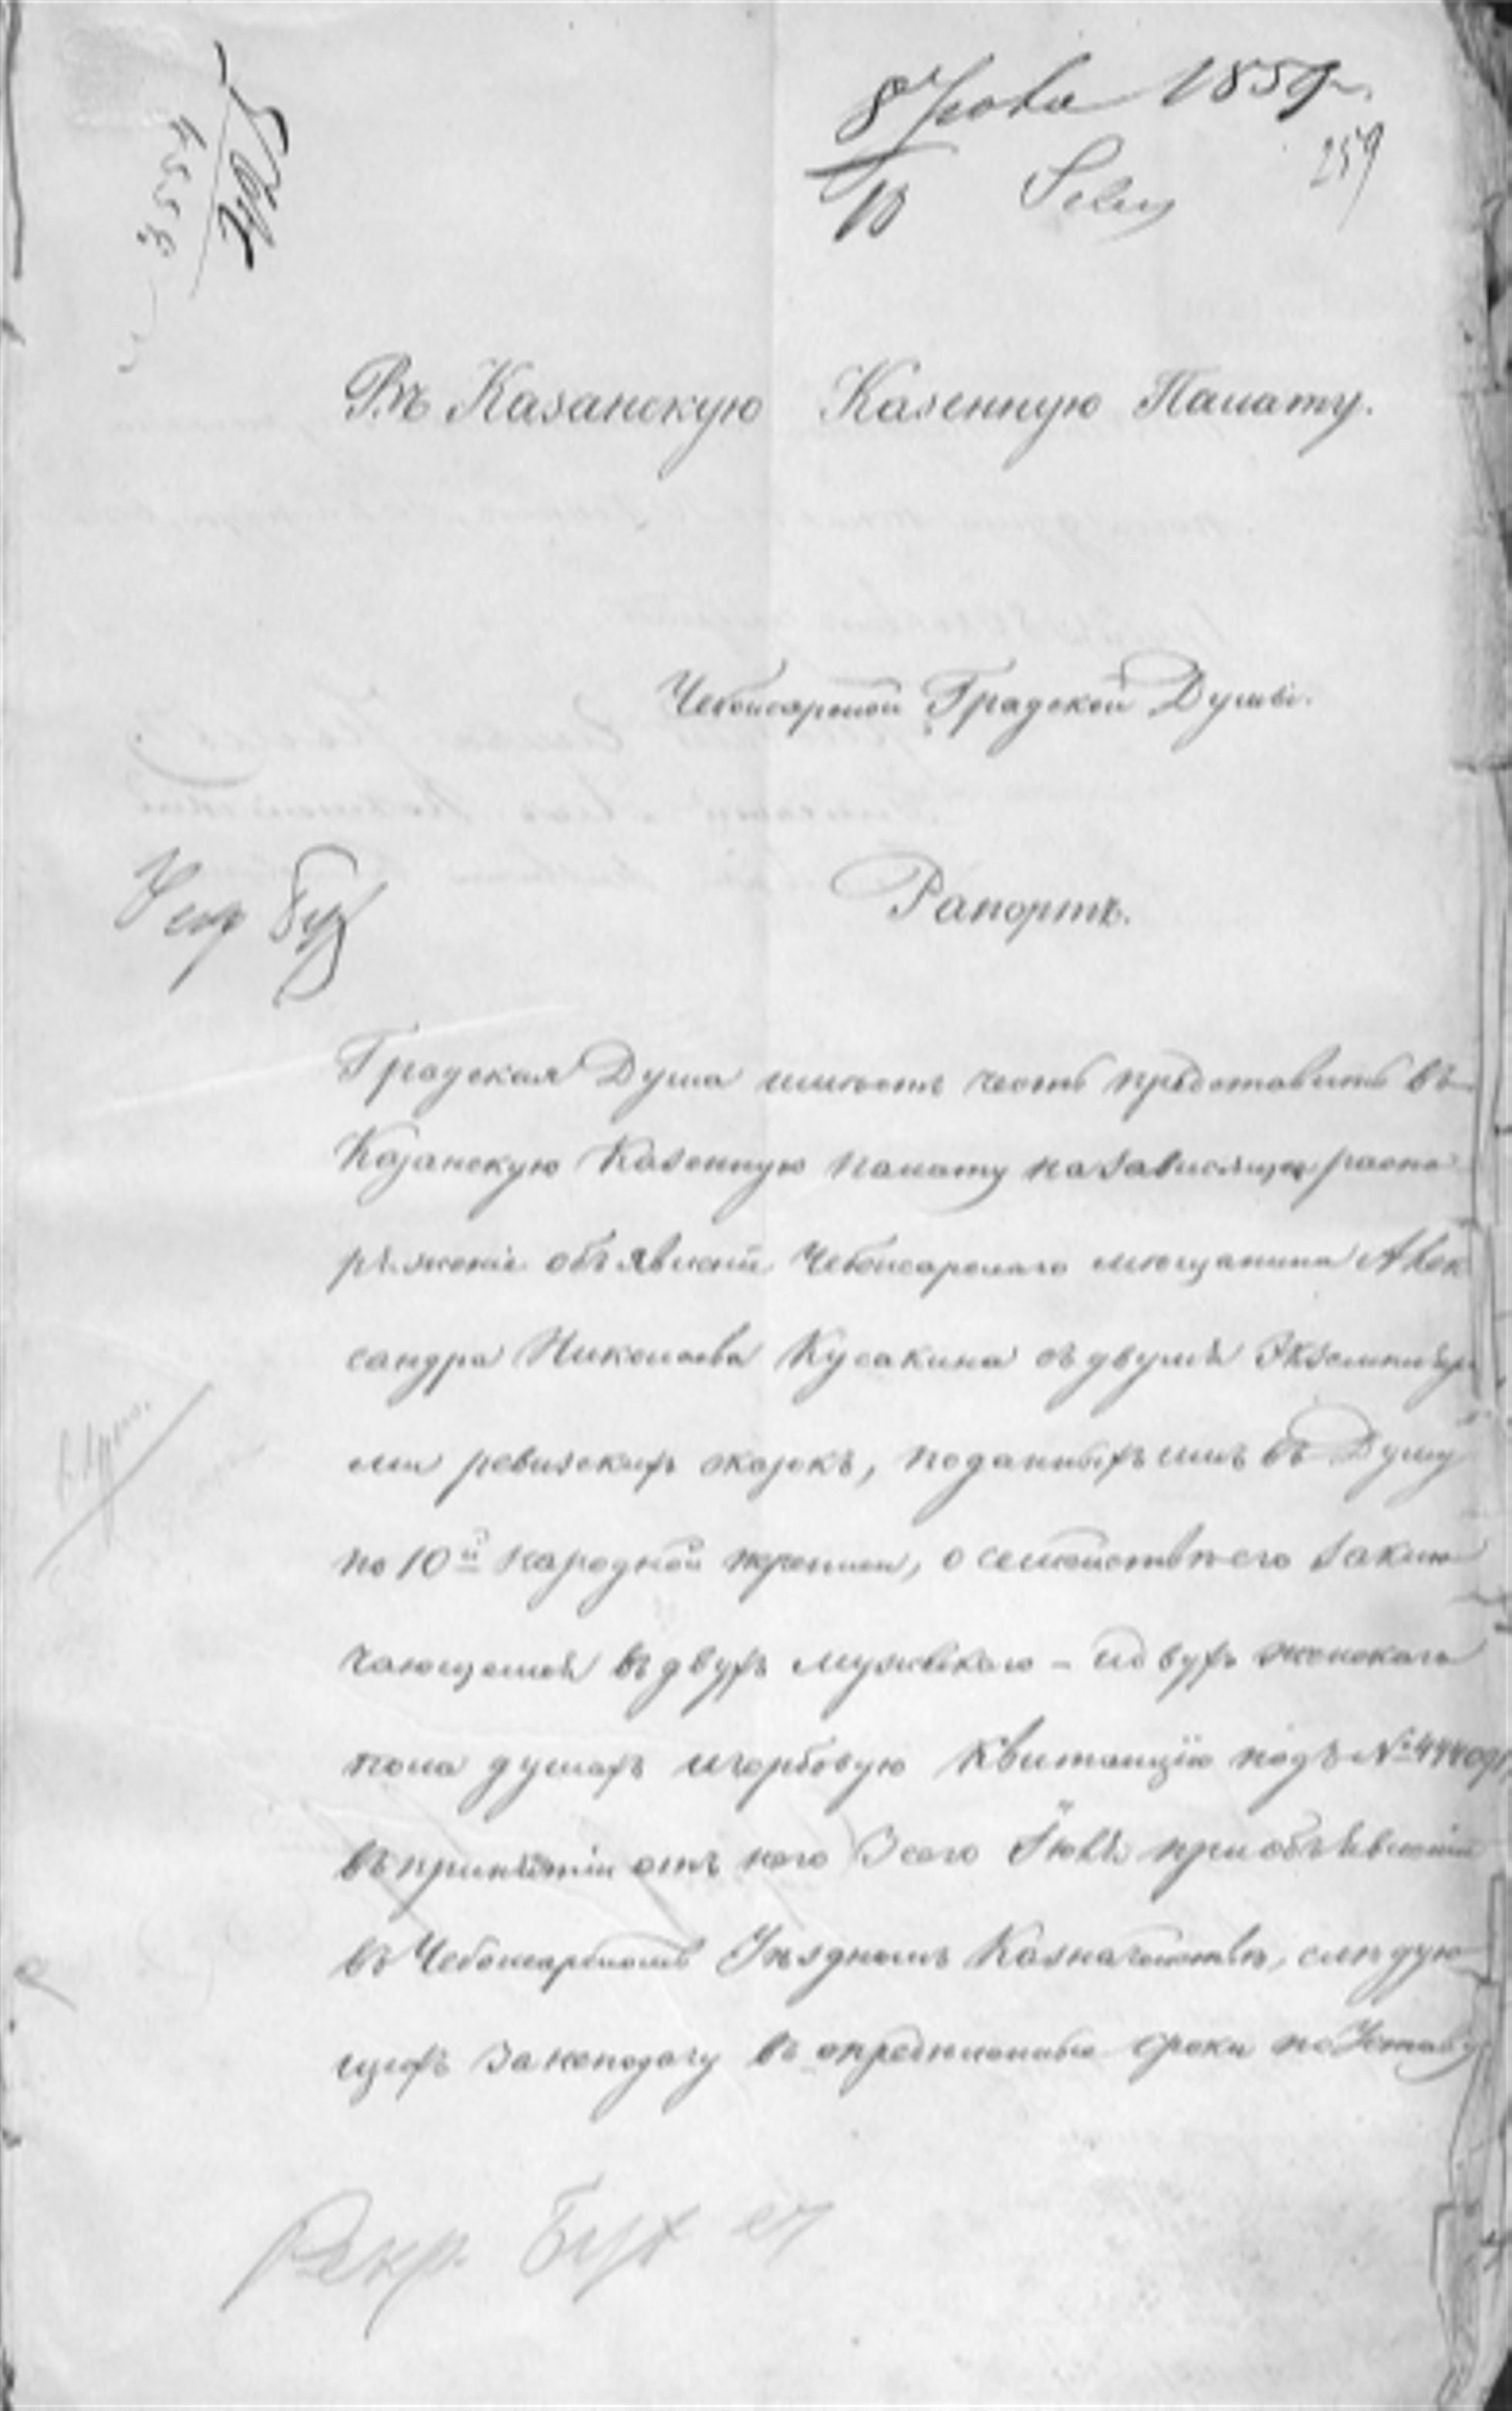 3554
1859
259
Въ Казанскую Казенную Палату.
Чебоксарской Градской Думы.
Рапортъ.
Градская Дума имѣетъ честь представить въ
Казанскую Казенную палату на зависящее распо
ряженіе объявленіе Чебоксарскаго мѣщанина Алек
сандра Николаева Кусакина съ двумя Экземпляра
ми ревизскихъ сказокъ, поданныхъ имъ въ Думу
по 10й народной переписи, о семействѣ его заклю
чающемся въ двухъ мужескаго - и двухъ женскаго
пола душахъ и гербовую квитанцію подъ №
въ принятіи отъ него сего Іюля при объявленіи
въ Чебоксарскомъ Уѣздномъ Казначействѣ, слѣдую
щихъ за неподачу въ опредѣленные сроки по Уставу